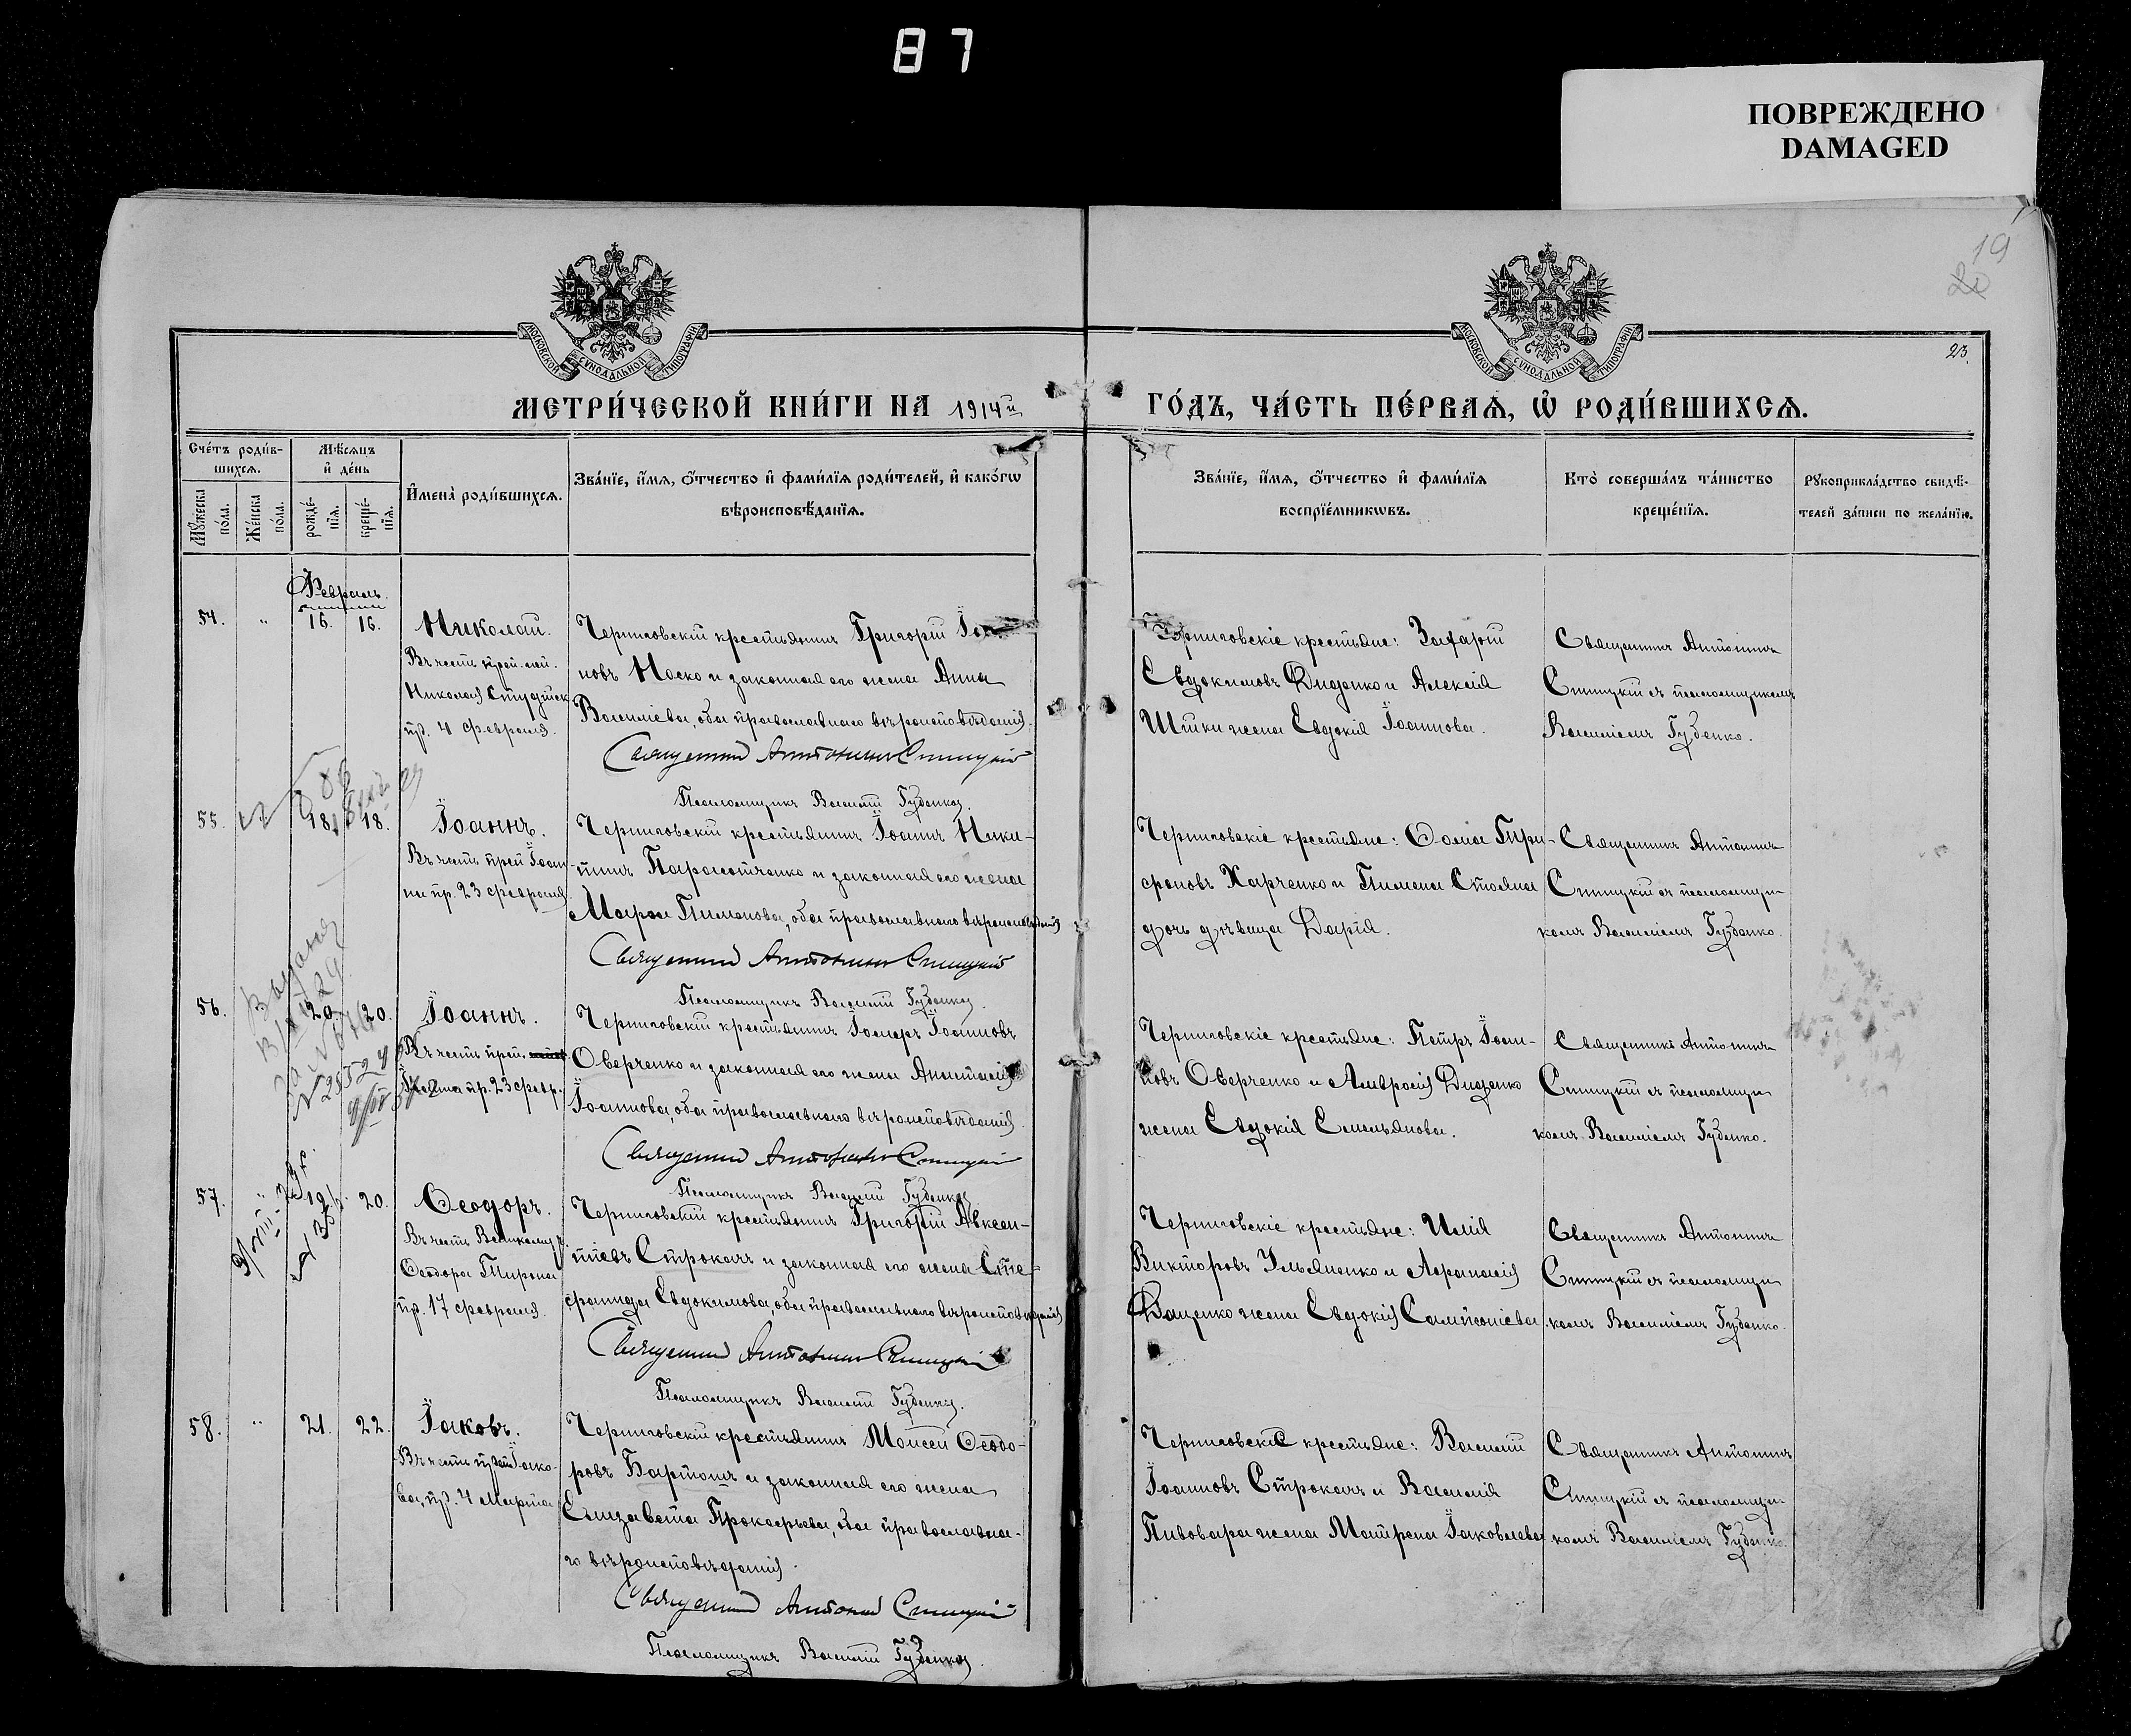 87
ПОВРЕЖДЕНО
DAMAGED
19
20
23.
МОСКОВСКОЙ СѴНОДАЛЬНОЙ ТИПОГРАФІИ
МОСКОВСКОЙ СѴНОДАЛЬНОЙ ТИПОГРАФІИ
МЕТРИ́ЧЕСКОЙ КНИ́ГИ НА 1914й ГО́ДЪ, ЧА́СТЬ ПЕ́РВАѦ, Ѡ҆ РОДИ́ВШИХСѦ.
Сче́тъ роди́в-
шихсѧ.
Мꙋ́жеска по́ла.
Же́нска по́ла.
Мѣ́сѧцъ
и҆ де́нь
рожде́-
нїѧ.
креще́-
нїѧ.
И҆мена̀ роди́вшихсѧ.
Зва́нїе, и҆́мѧ, ѻ҆́тчество и҆ фами́лїѧ роди́телей, и҆ како́гѡ
вѣроисповѣ́данїѧ.
Зва́нїе, и҆́мѧ, ѻ҆́тчество и҆ фами́лїѧ
воспрїе́мникѡвъ.
Кто̀ соверша́лъ та́инство
креще́нїѧ.
Рꙋкоприкла́дство свидѣ́-
телей за́писи по жела́нїю.
Февраль.
54. " 16. 16.
Николай.
Въ честь преп.
Николая Студійск
пр. 4 февраля.
Черниговскій крестьянинъ Григорій
новъ Носко и законная его жена Анна
Василіева, оба православнаго вѣроисповѣданія.
Священникъ Антонинъ Спицкій
Псаломщикъ Василій Губенко.
Черниговскіе крестьяне: Захарій
Евдокимовъ Диденко и Алексія
Шійки жена Евдокія Іоаннова.
Священникъ Антонинъ
Спицкій съ псаломщикомъ
Василіемъ Губенко.
55. 18. 18.
Іоаннъ.
Въ честь преп. Іоан-
на пр. 23 февраля.
Черниговскій крестьянинъ Іоаннъ Ники-
тинъ и законная его жена
Марѳа Пименова, оба православнаго вѣроисповѣданія
Священникъ Антонинъ Спицкій
Псаломщикъ Василій Губенко.
Черниговскіе крестьяне: Ѳома
Харченко и Пимена Стояна
дочь дѣвица Дарія.
Священникъ Антонинъ
Спицкій съ псаломщи-
комъ Василіемъ Губенко.
56. 20. 20.
Іоаннъ.
Въ честь преп.
Іоанна пр. 23 февр.
Черниговскій крестьянинъ Іоаннъ Іоанновъ
Оверченко и законная его жена Анастасія
Іоаннова, оба православнаго вѣроисповѣданія.
Священникъ Антонинъ Спицкій
Псаломщикъ Василій Губенко
Черниговскіе крестьяне: Петръ Іоан-
новъ Оверченко и Амвросія Диденко
жена Евдокія Емельянова.
Священникъ Антонинъ
Спицкій съ псаломщи-
комъ Василіемъ Губенко.
57. " 19. 20.
Ѳеодоръ.
Въ честь Великому
Ѳеодора Тирона
пр. 17 февраля.
Черниговскій крестьянинъ Григорій Авксен-
тіевъ Строкачъ и законная его жена Сте-
фанида Евдокимова, оба православнаго вѣроисповѣданія
Священникъ Антонинъ Спицкій
Псаломщикъ Василій Губенко.
Черниговскіе крестьяне: Илія
Викторовъ Ульяненко и Аѳанасія
Даценко жена Евдокія Сампсоніева.
Священникъ Антонинъ
Спицкій съ псаломщи-
комъ Василіемъ Губенко.
58. " 21. 22.
Іаковъ.
Въ честь преп. Іако-
ва, пр. 4 Марта
Черниговскій крестьянинъ Моисей Ѳеодо-
ровъ Бартошъ и законная его жена
Елизавета Прокофьева, оба православна-
го вѣроисповѣданія.
Священникъ Антонинъ Спицкій
Псаломщикъ Василій Губенко.
Черниговскіе крестьяне: Василій
Іоанновъ Строкачъ и Василія
Пивовара жена Матрена Іаковлева
Священникъ Антонинъ
Спицкій съ псаломщи-
комъ Василіемъ Губенко.